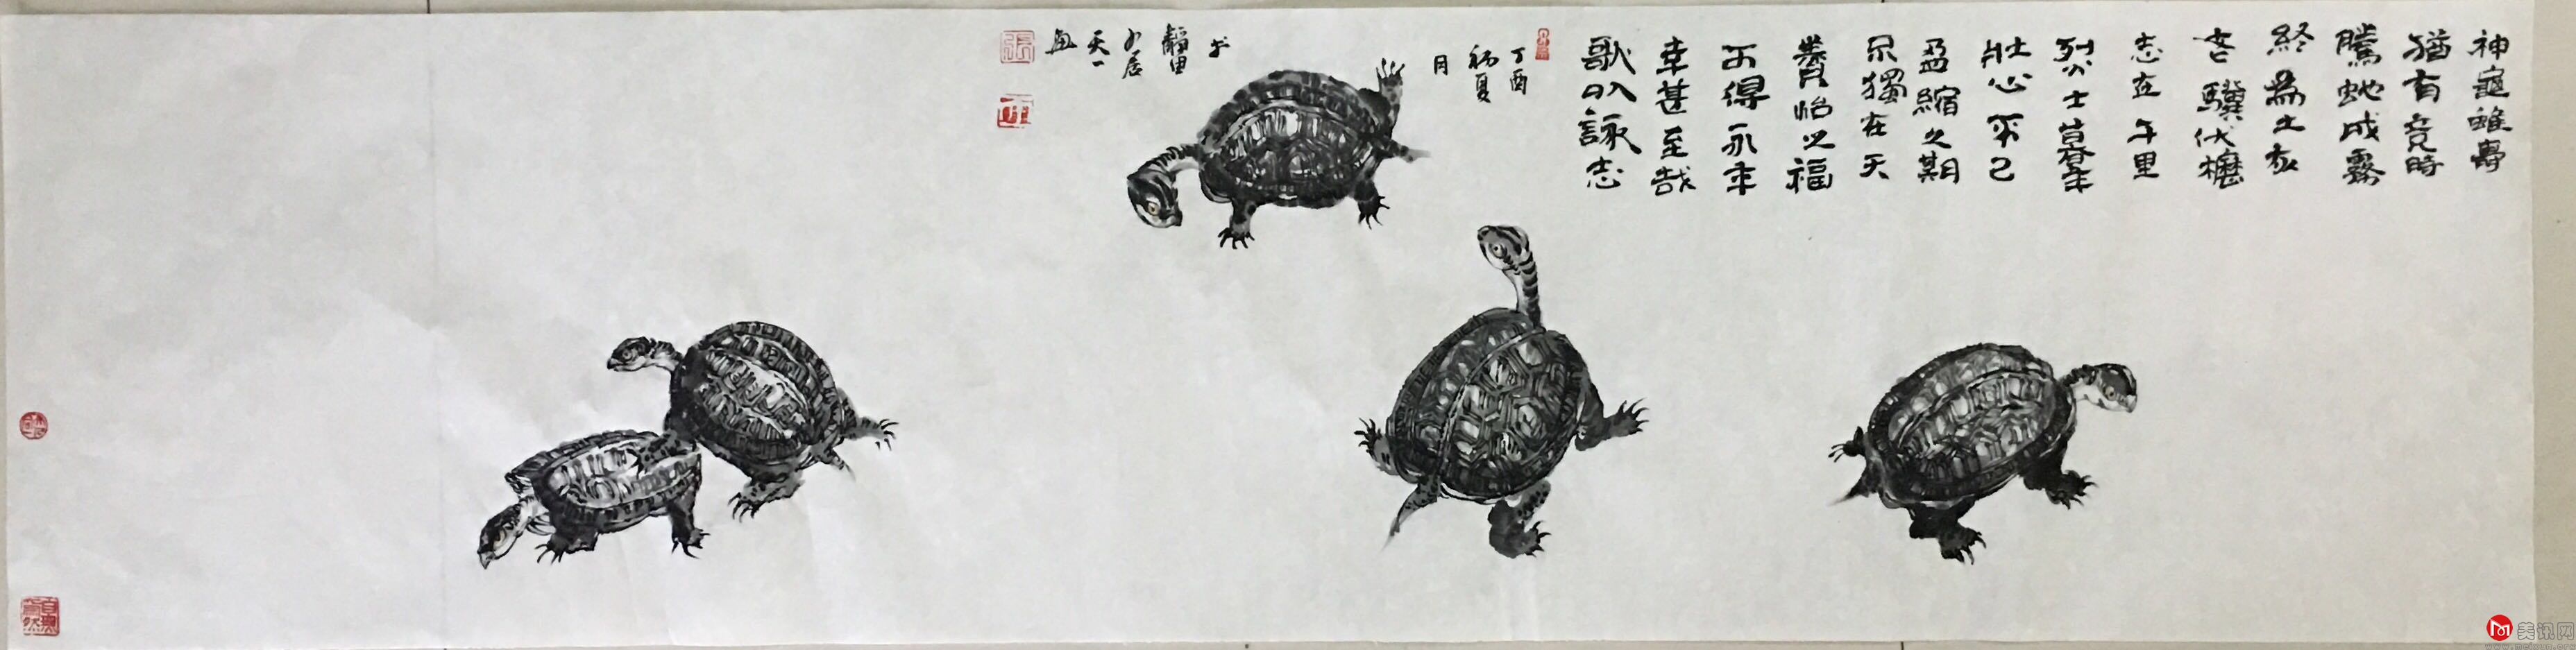 神龜雖壽
猶有竟時
騰虵成霧
終爲土灰
老驥伏櫪
志在千里
烈士暮年
壯心不已
盈縮之期
不獨在天
養怡之福
可得永年
幸甚至哉
歌以詠志
丁酉
初夏
月
于
小居
天一
画
美讯网